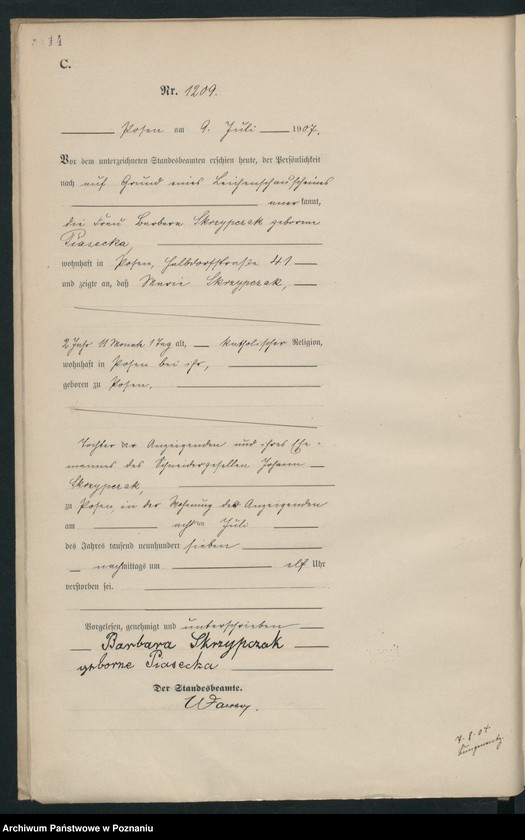 14
C.
Nr. 1209.
Posen am 9. Juli 1907.
Vor dem unterzeichneten Standesbeamten erschien heute, der Persönlichkeit
nach auf Grund eines Leichenschauscheines
anerkannt,
die Frau Barbara Skrzypczak geborene
Piasecka,
wohnhaft in Posen, Halbdorfstraße 41
und zeigte an, daß Marie Skrzypczak,
2 Jahr 11 Monate 1 Tag alt, katholischer Religion,
wohnhaft in Posen bei ihr,
geboren zu Posen,
Tochter der Anzeigenden und ihres Ehe-
mannes des Schneidergesellen Johann
Skrzypczak,
zu Posen, in der Wohnung der Anzeigenden
am achten Juli
des Jahres tausend neunhundert sieben
nachmittags um elf Uhr
verstorben sei.
Vorgelesen, genehmigt und unterschrieben
Barbara Skrzypczak
geborne Piasecka
Der Standesbeamte.
Archiwum Państwowe w Poznaniu